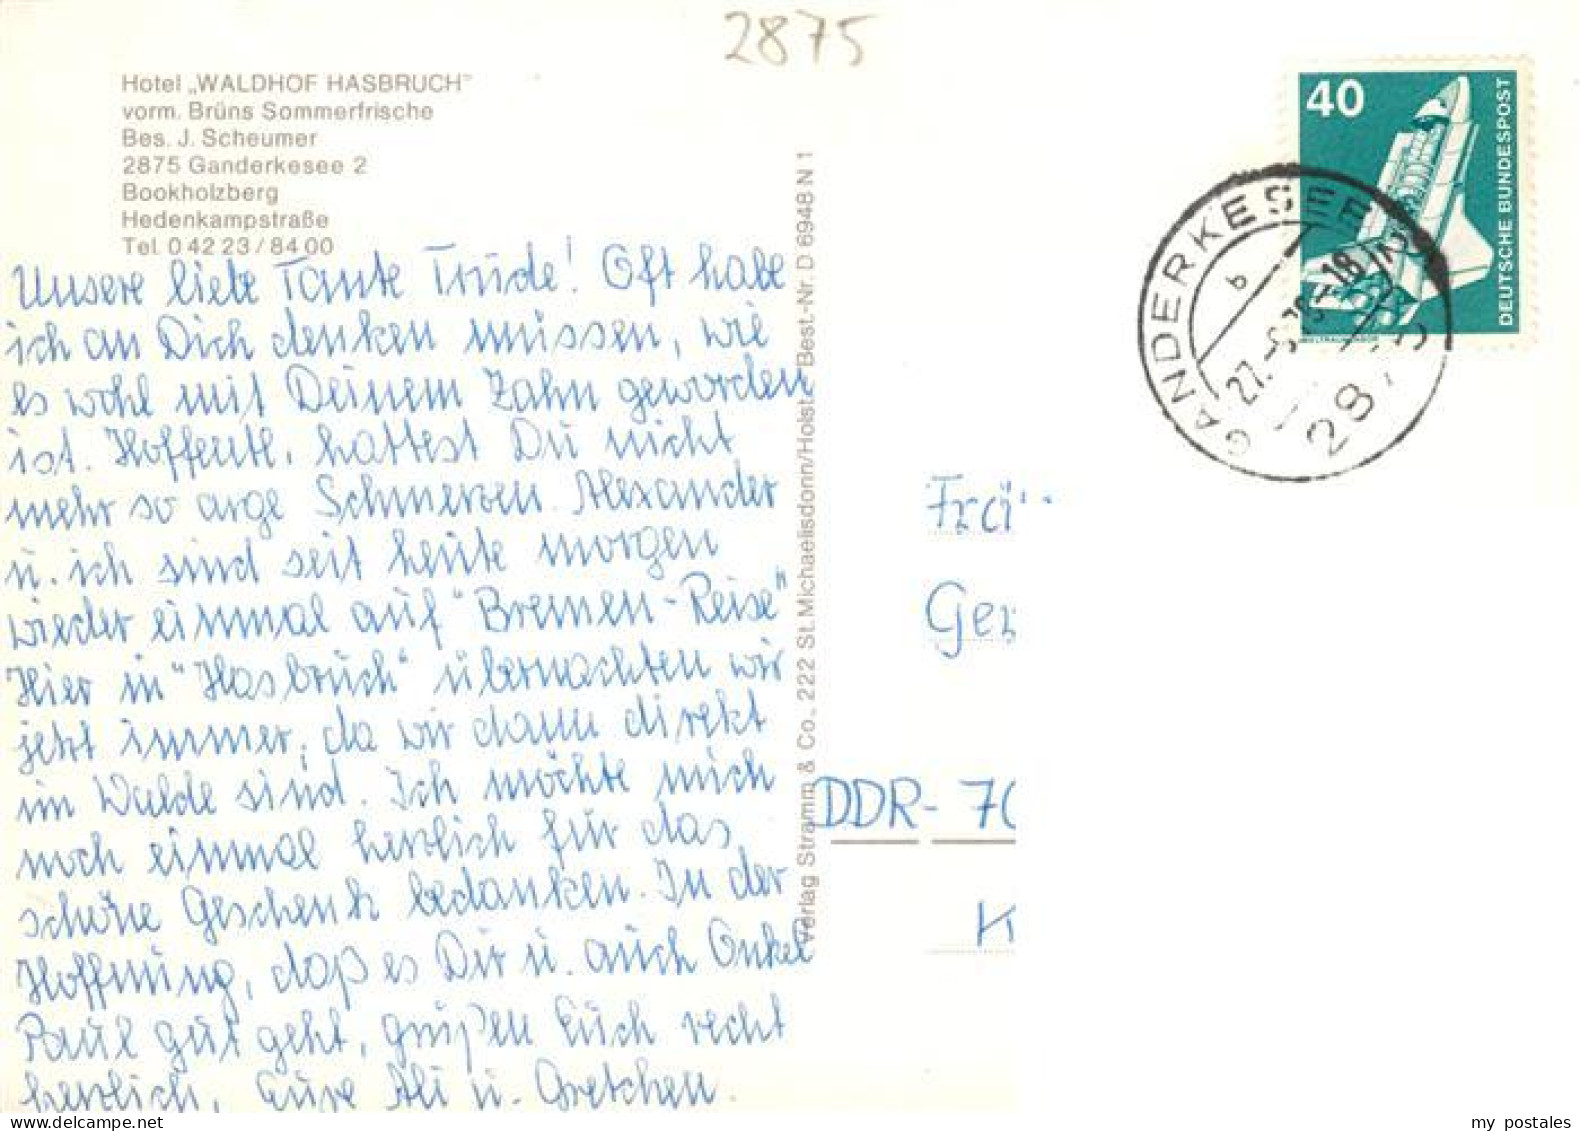 2875
Hotel „WALDHOF HASBRUCH"
vorm. Brüns Sommerfrische
Bes. J. Scheumer
2875 Ganderkesee 2
Bookholzberg
Hedenkampstraße
Tel. 0 42 23 / 84 00
Unsere liebe Tante Trude! Oft habe
ich an Dich denken müssen, wie
es wohl mit Deinem Zahn geworden
ist. Hoffentl. hattest Du nicht
mehr so arge Schmerzen. Alexander
u. ich sind seit heute morgen
wieder einmal auf "Bremen-Reise"
Hier in "Hasbruch" übernachten wir
jetzt immer, da wir dann direkt
im Walde sind. Ich möchte mich
noch einmal herzlich für das
schöne Geschenk bedanken. In der
Hoffnung, daß es Dir u. auch Onkel
Paul gut geht, grüßen Euch recht
herzlich, Eure Ali u. Gretchen.
Verlag Stramm & Co., 222 St. Michaelisdonn/Holst. Best.-Nr. D 6948 N 1
40
DEUTSCHE BUNDESPOST
GANDERKESEE 2
b
27.
-18
2875
Ger
DDR- 70
K
my postales